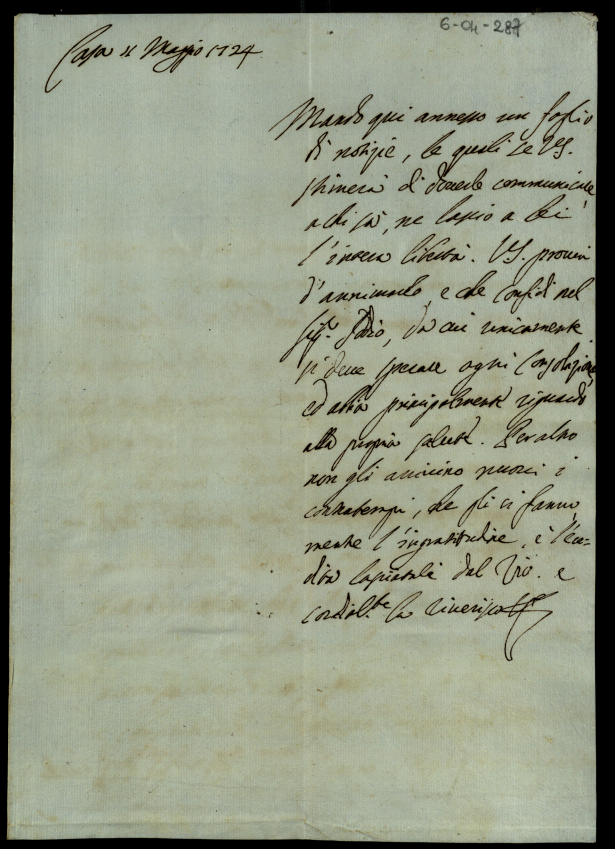 6-04-287
Casa 11 Maggio 1724
Mando qui annesso un foglio
di notizie, le quali se VS.
stimerà di doverle communicare
a chi sà, ne lascio a lei
l'intera libertà. VS. procuri
d'animarlo, e che confidi nel
Sig.r Iddio, da cui unicamente
si deve sperare ogni consolazione,
ed abbia principalmente riguardo
alla propria salute. Per altro
non gli arrivino nuovi i
contratempi, che gli si fanno,
mentre l'ingratitudine, è l'ere-
dità lasciatali dal Zio. e
cordial.te la riverisco